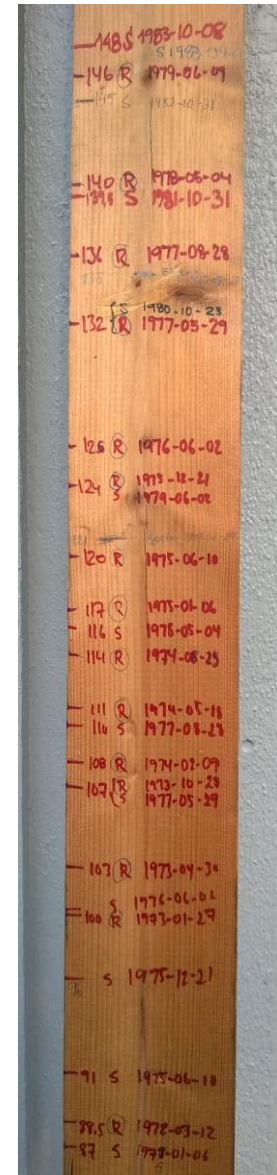 148 S 1983-10-08
146 R 1979-06-09
145 S 1982-10-31
140 R 1978-06-04
139,8 S 1981-10-31
136 R 1977-08-28
S 1980-10-23
132 R 1977-05-29
126 R 1976-06-02
124 R 1975-12-21
S 1979-06-02
120 R 1975-06-10
117 R
116 S 1978-05-04
114 R 1974-08-25
111 R 1974-05-18
110 S 1977-08-28
108 R 1974-02-09
107 R 1973-10-28
S 1977-05-29
103 R 1973-04-30
S 1976-06-02
100 R 1973-01-27
S 1975-12-21
91 S 1975-06-10
88,5 R 1972-03-12
87 S